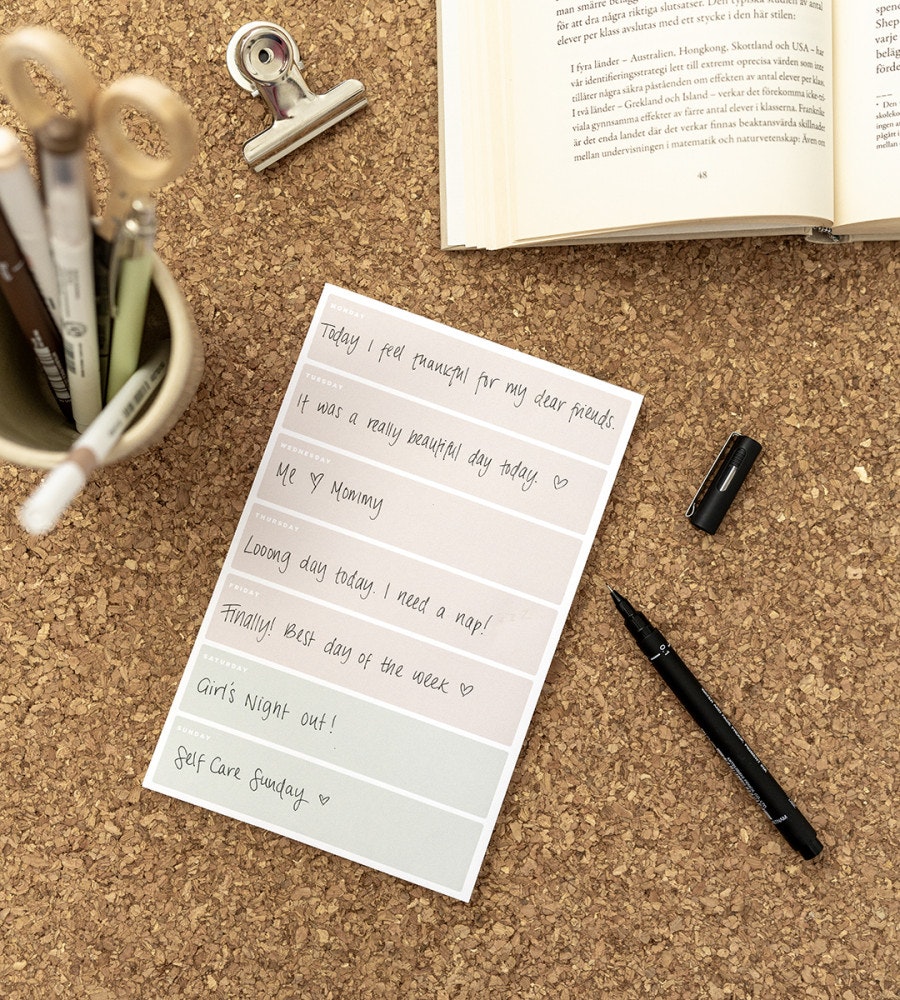 man
för att dra några riktiga slutsatser. Den typiska studien av antal
elever per klass avslutas med ett stycke i den här stilen:
I fyra länder – Australien, Hongkong, Skottland och USA – har
vår identifieringsstrategi lett till extremt oprecisa värden som inte
tillåter några säkra påståenden om effekten av antal elever per klass.
I två länder – Grekland och Island – verkar det förekomma icke-tri-
viala gynnsamma effekter av färre antal elever i klasserna. Frankrike
är det enda landet där det verkar finnas beaktansvärda skillnader
mellan undervisningen i matematik och naturvetenskap: Även om
48
varje
MONDAY
Today I feel thankful for my dear friends.
TUESDAY
It was a really beautiful day today. ♡
WEDNESDAY
Me ♡ Mommy
THURSDAY
Looong day today. I need a nap!
FRIDAY
Finally! Best day of the week ♡
SATURDAY
Girl's Night out!
SUNDAY
Self Care Sunday ♡